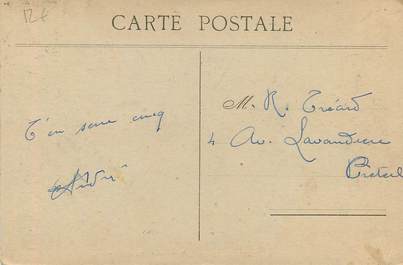 R6
CARTE POSTALE
T'en serre cinq
André
M. R. Tréard
4 Av. Lavandiere
Créteil